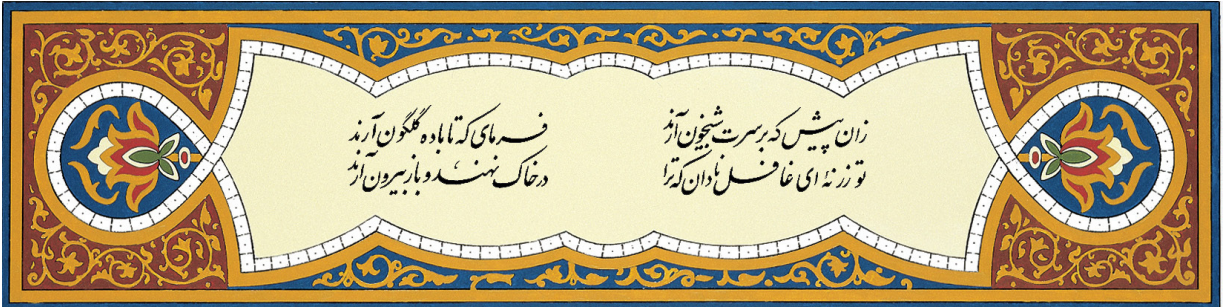 زان پیش که بر سرت شبیخون آرند فرمای که تا باده گلگون آرند
تو زر نه ای غافل نادان که ترا در خاک نهند و باز بیرون آرند